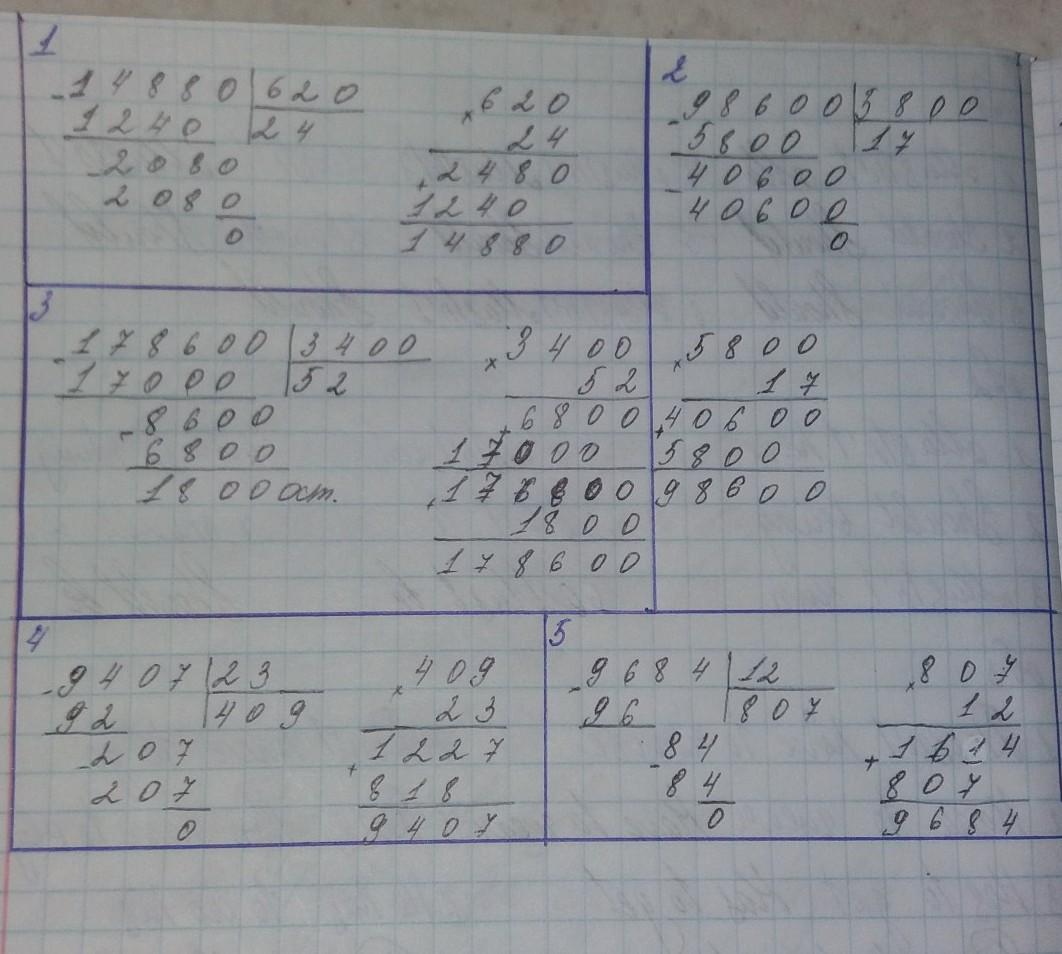 1
-14880 | 620
1240 | 24
-2080
2080
0
×620
24
+2480
1240
14880
2
-98600 | 5800
5800 | 17
-40600
40600
0
×5800
17
+40600
5800
98600
3
-178600 | 3400
17000 | 52
-8600
6800
1800 ост.
×3400
52
+6800
17000
+176800
1800
178600
4
-9407 | 23
92 | 409
-207
207
0
×409
23
+1227
818
9407
5
-9684 | 12
96 | 807
-84
84
0
×807
12
+1614
807
9684